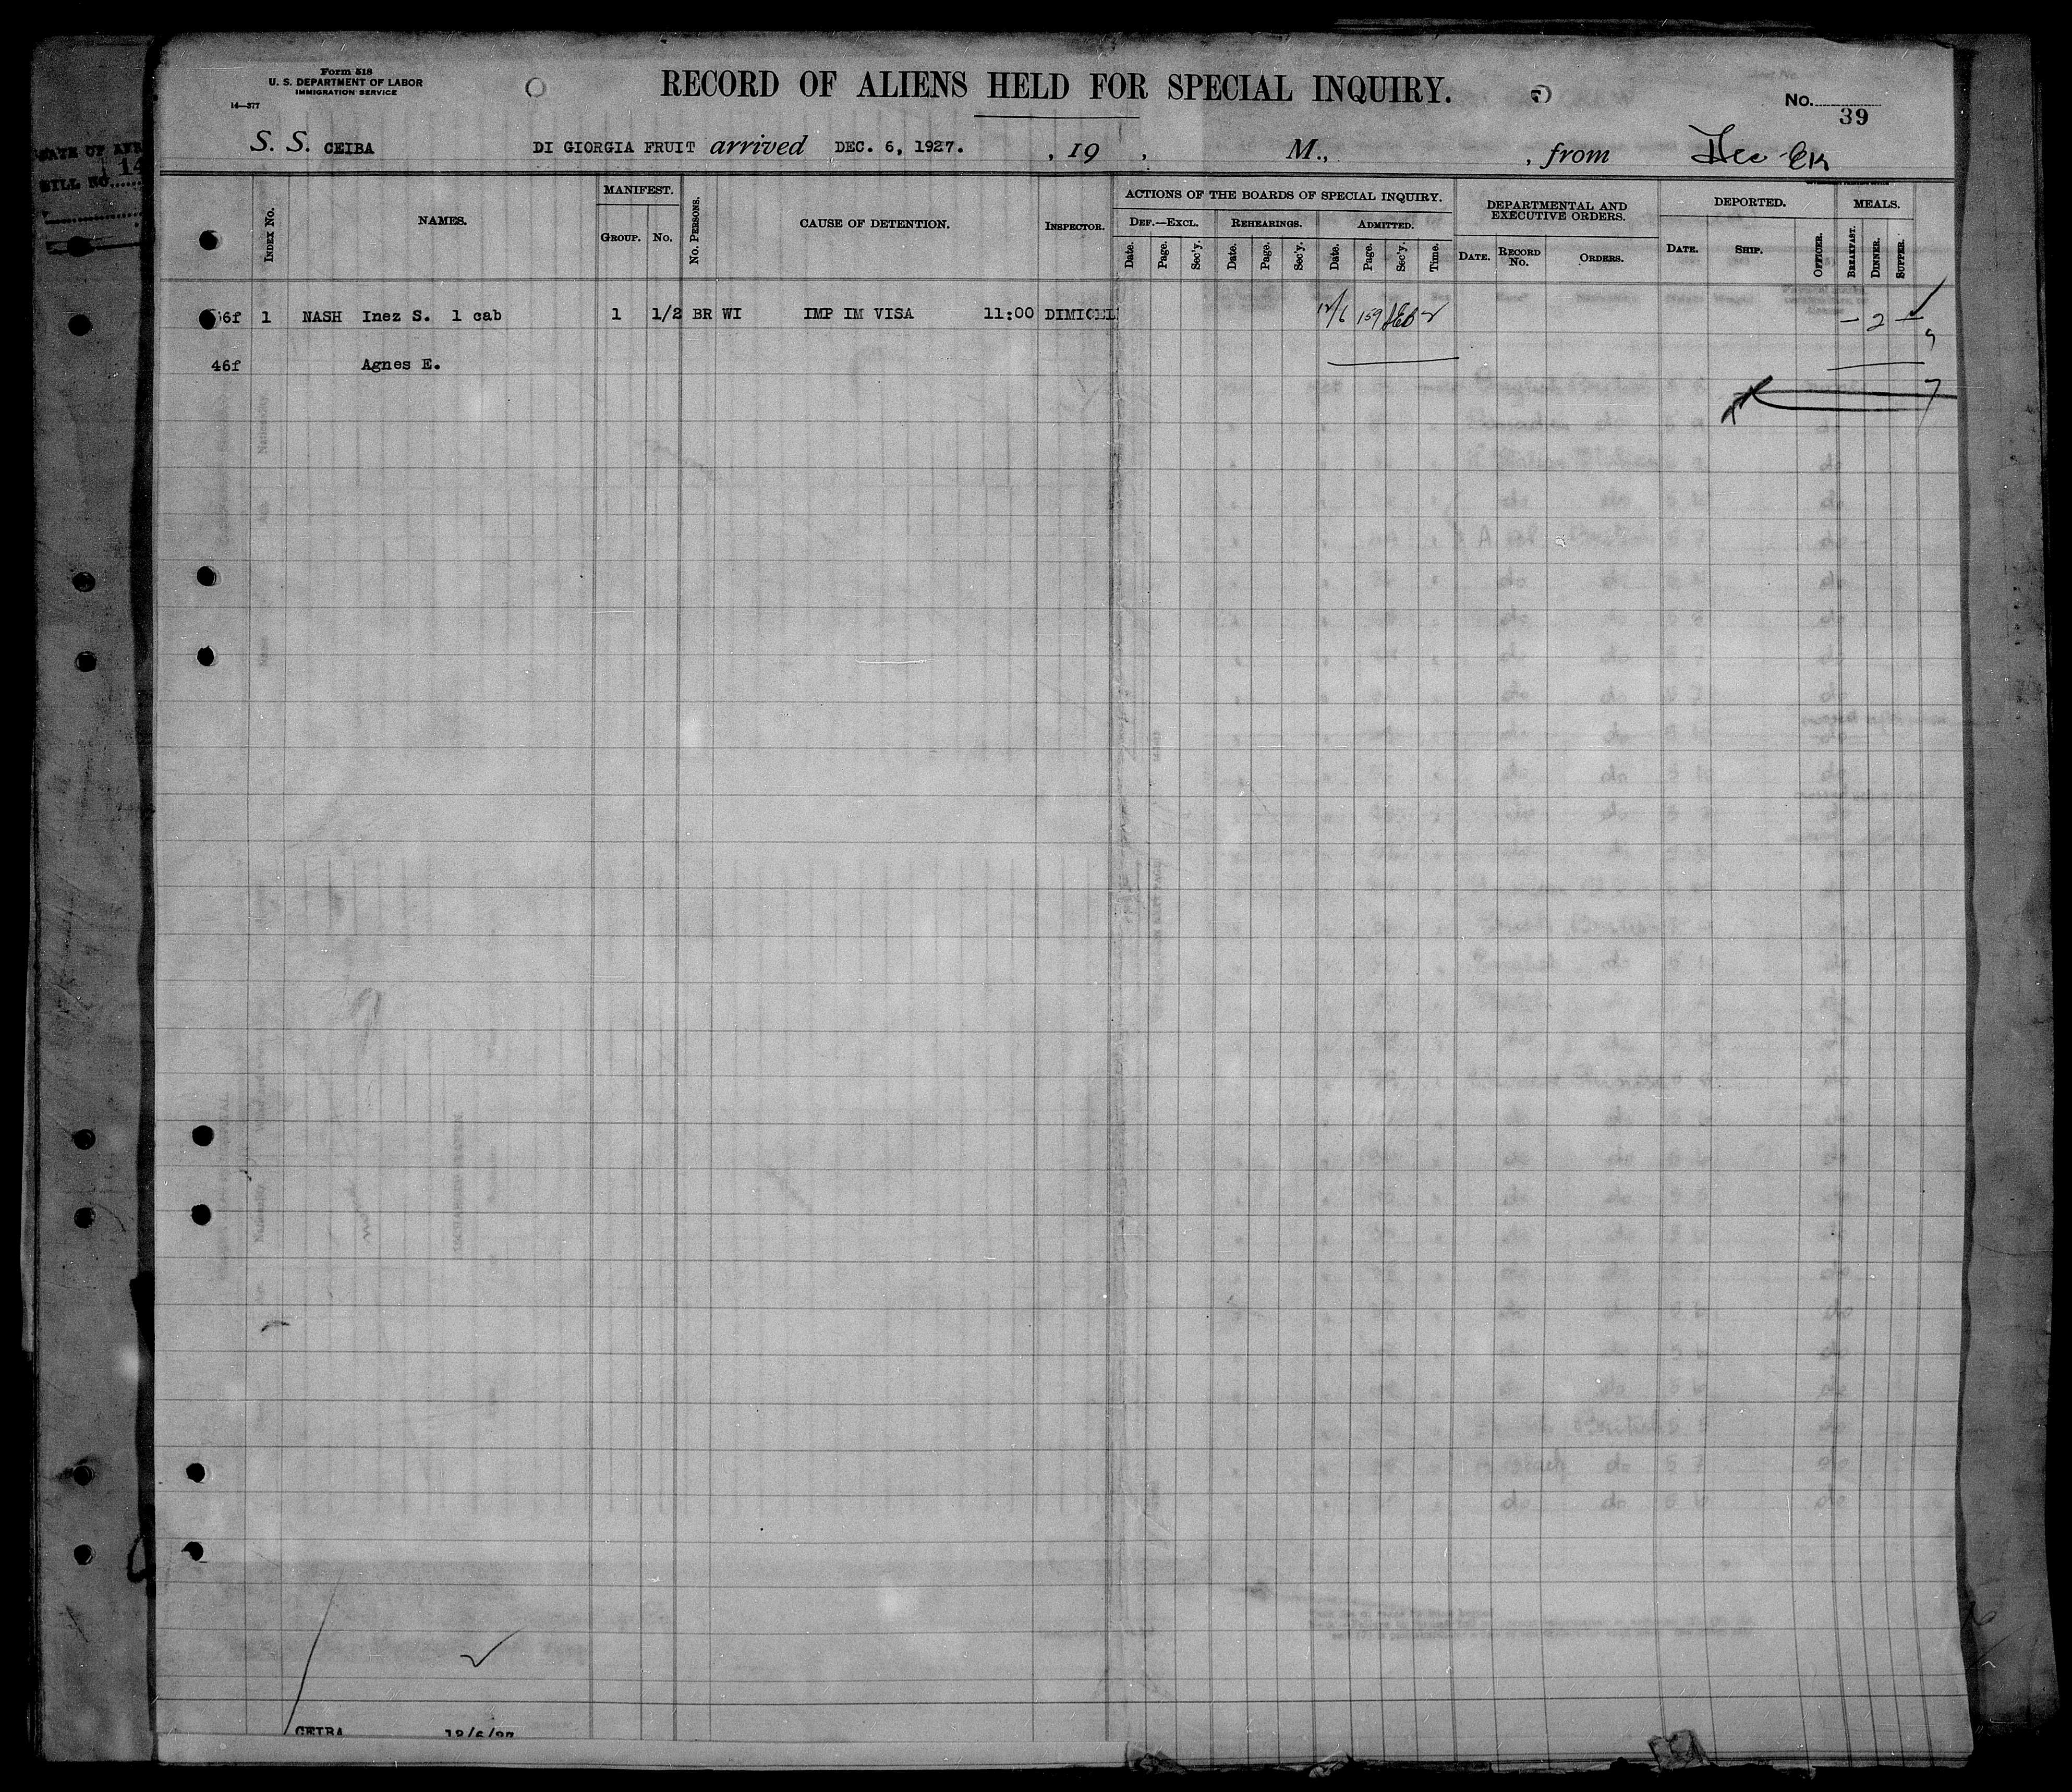 Form 518
U. S. DEPARTMENT OF LABOR
IMMIGRATION SERVICE
14—377
RECORD OF ALIENS HELD FOR SPECIAL INQUIRY.
No.
39
BILL NO. 14
S. S. CEIBA DI GIORGIA FRUIT arrived DEC. 6, 1927. , 19 , M., , from
INDEX NO.
NAMES.
MANIFEST.
GROUP. NO.
NO. PERSONS.
CAUSE OF DETENTION.
INSPECTOR.
ACTIONS OF THE BOARDS OF SPECIAL INQUIRY.
DEF.—EXCL. REHEARINGS. ADMITTED.
Date. Page. Sec'y. Date. Page. Sec'y. Date. Page. Sec'y. Time.
DEPARTMENTAL AND
EXECUTIVE ORDERS.
DATE. RECORD NO. ORDERS.
DEPORTED.
DATE. SHIP. OFFICER.
MEALS.
BREAKFAST. DINNER. SUPPER.
6f 1 NASH Inez S. 1 cab 1 1/2 BR WI IMP IM VISA 11:00 DIMICEL 12/6 159 — 2 —
46f Agnes E.
7
CEIBA 12/6/27